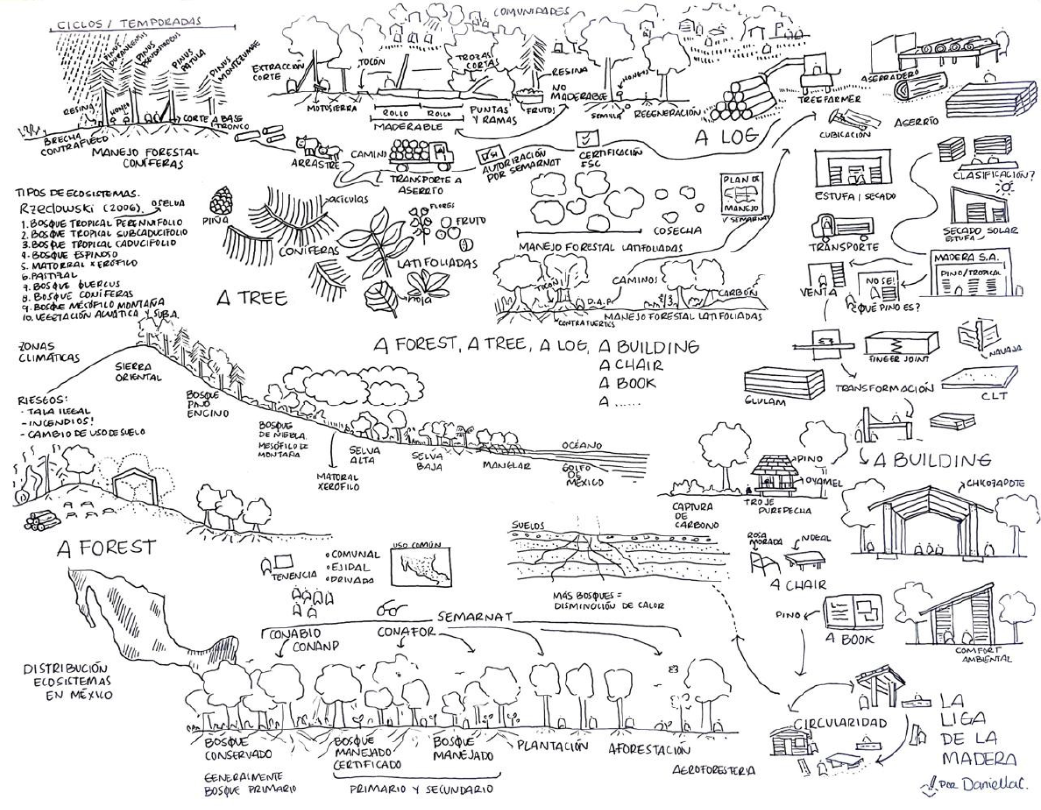 CICLOS / TEMPORADAS
PINUS
PINUS PSEUDOSTROBUS
PINUS PATULA
PINUS MONTEZUMAE
RESINA
HONGOS
CORTE A BASE
TRONCO
BRECHA
CONTRAFUEGO
MANEJO FORESTAL
CONÍFERAS
COMUNIDADES
EXTRACCIÓN
CORTE
TOCÓN
MOTOSIERRA
TROZAS
CORTAS
ROLLO
ROLLO
MADERABLE
PUNTAS
Y RAMAS
FRUTOS
RESINA
NO
MADERABLE
HONGOS
SEMILLA
REGENERACIÓN
A LOG
TREEFARMER
CUBICACIÓN
ASERRADERO
ASERRÍO
ARRASTRE
CAMINO
TRANSPORTE A
ASERRÍO
AUTORIZACIÓN
POR SEMARNAT
CERTIFICACIÓN
FSC
PLAN DE
MANEJO
Y SEMARNAT
COSECHA
MANEJO FORESTAL LATIFOLIADAS
ESTUFA / SECADO
CLASIFICACIÓN?
SECADO SOLAR
ESTUFA
TRANSPORTE
MADERA S.A.
PINO/TROPICAL
VENTA
NO SE!
¿QUÉ PINO ES?
TIPOS DE ECOSISTEMAS.
Rzedowski (2006). O SELVA
1. BOSQUE TROPICAL PERENNIFOLIO
2. BOSQUE TROPICAL SUBCADUCIFOLIO
3. BOSQUE TROPICAL CADUCIFOLIO
4. BOSQUE ESPINOSO
5. MATORRAL XERÓFILO
6. PASTIZAL
7. BOSQUE QUERCUS
8. BOSQUE CONÍFERAS
9. BOSQUE MESÓFILO MONTAÑA
10. VEGETACIÓN ACUÁTICA Y SUBA.
PIÑA
ACÍCULAS
CONÍFERAS
FLORES
FRUTO
LATIFOLIADAS
HOJA
A TREE
TOCÓN
D.A.P.
CONTRAFUERTES
CAMINOS
CARBÓN
MANEJO FORESTAL LATIFOLIADAS
A FOREST, A TREE, A LOG, A BUILDING
A CHAIR
A BOOK
A ......
FINGER JOINT
NAVAJA
GLULAM
TRANSFORMACIÓN
CLT
A BUILDING
ZONAS
CLIMÁTICAS
SIERRA
ORIENTAL
BOSQUE
PINO
ENCINO
BOSQUE
DE NIEBLA.
MESÓFILO DE
MONTAÑA
MATORAL
XERÓFILO
SELVA
ALTA
SELVA
BAJA
MANGLAR
OCÉANO
GOLFO
DE
MÉXICO
RIESGOS:
- TALA ILEGAL
- INCENDIOS!
- CAMBIO DE USO DE SUELO
A FOREST
CAPTURA
DE
CARBONO
PINO
OYAMEL
TROJE
PUREPECHA
CHICOZAPOTE
SUELOS
MÁS BOSQUES =
DISMINUCIÓN DE CALOR
ROSA
MORADA
A CHAIR
PINO
A BOOK
COMFORT
AMBIENTAL
TENENCIA
COMUNAL
EJIDAL
PRIVADA
USO COMÚN
SEMARNAT
CONABIO
CONANP
CONAFOR
DISTRIBUCIÓN
ECOSISTEMAS
EN MÉXICO
BOSQUE
CONSERVADO
GENERALMENTE
BOSQUE PRIMARIO
BOSQUE
MANEJADO
CERTIFICADO
BOSQUE
MANEJADO
PRIMARIO Y SECUNDARIO
PLANTACIÓN
AFORESTACIÓN
AEROFORESTERIA
CIRCULARIDAD
LA
LIGA
DE LA
MADERA
POR DaniellaC.